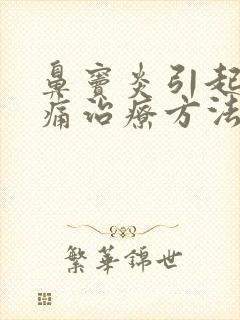 鼻窦炎引起
痛治疗方法
繁华锦世